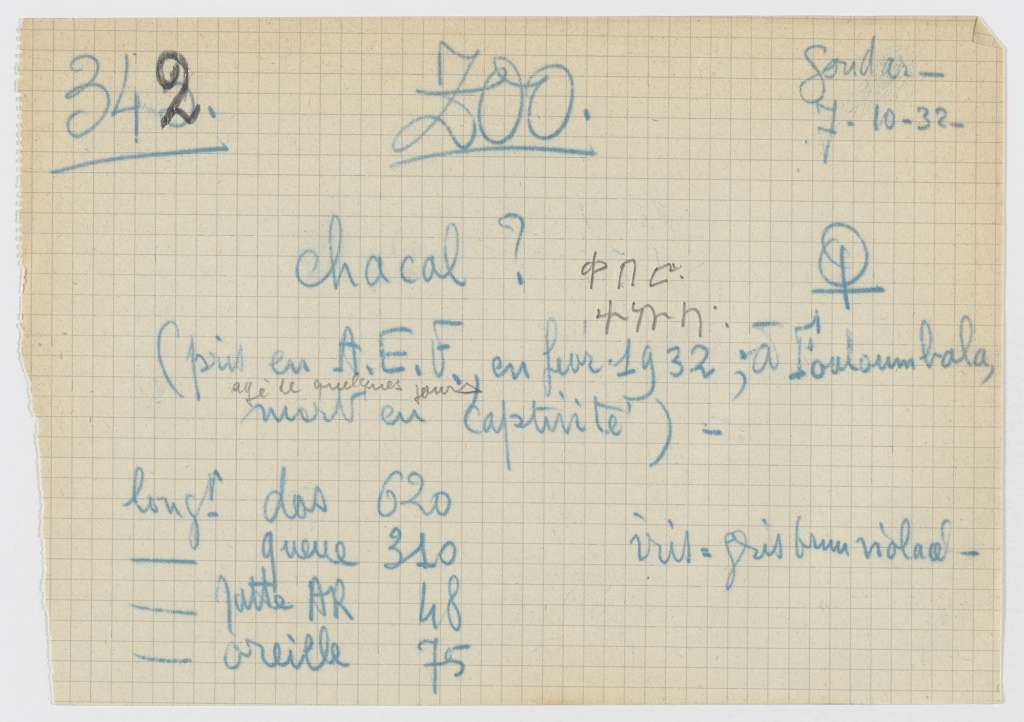 342.
ZOO.
Gondar –
7 - 10 - 32 –
chacal ?
♀
(pris en A.E.F., en févr. 1932 ; à Fouloumbala,
agé de quelques jours
mort en captivité) –
longr dos 620
— queue 310
— patte AR 48
— oreille 75
iris = gris brun violacé –